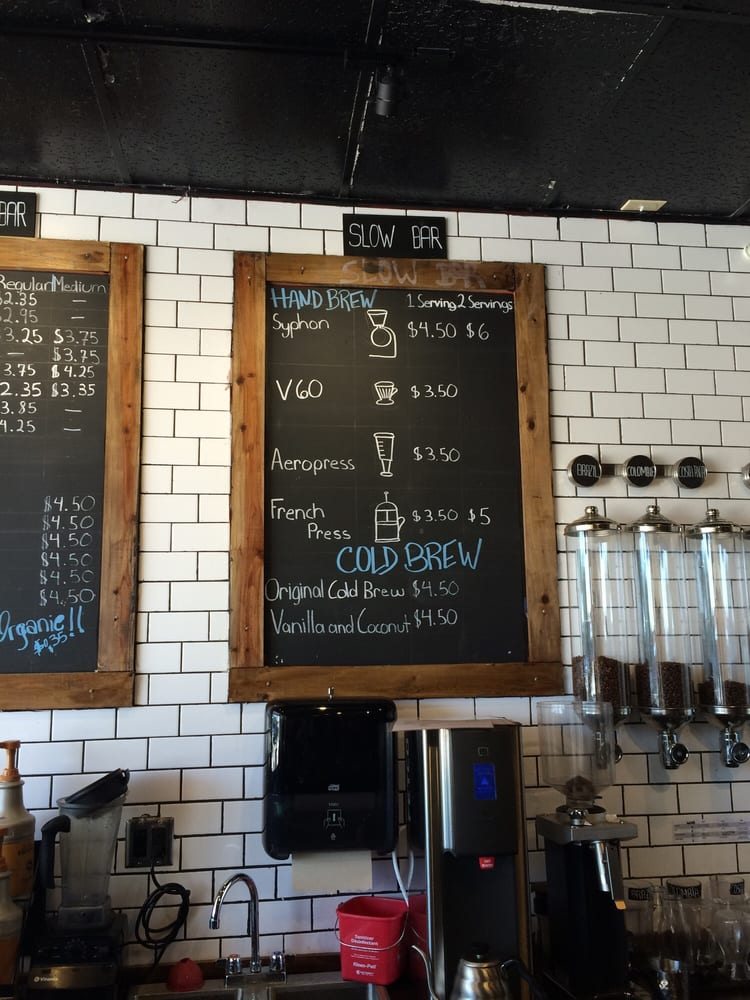 BAR
Regular Medium
2.35 —
2.95 —
3.25 $3.75
— $3.75
3.75 $4.25
2.35 $3.35
3.85 —
4.25 —
$4.50
$4.50
$4.50
$4.50
$4.50
$4.50
Organic!!
$0.35
SLOW BAR
SLOW BAR
HAND BREW 1 Serving 2 Servings
Syphon $4.50 $6
V60 $3.50
Aeropress $3.50
French
Press $3.50 $5
COLD BREW
Original Cold Brew $4.50
Vanilla and Coconut $4.50
BRAZIL COLOMBIA COSTA RICA
tork
Sanitizer
Disinfectant
Kleen-Pail
Vitamix